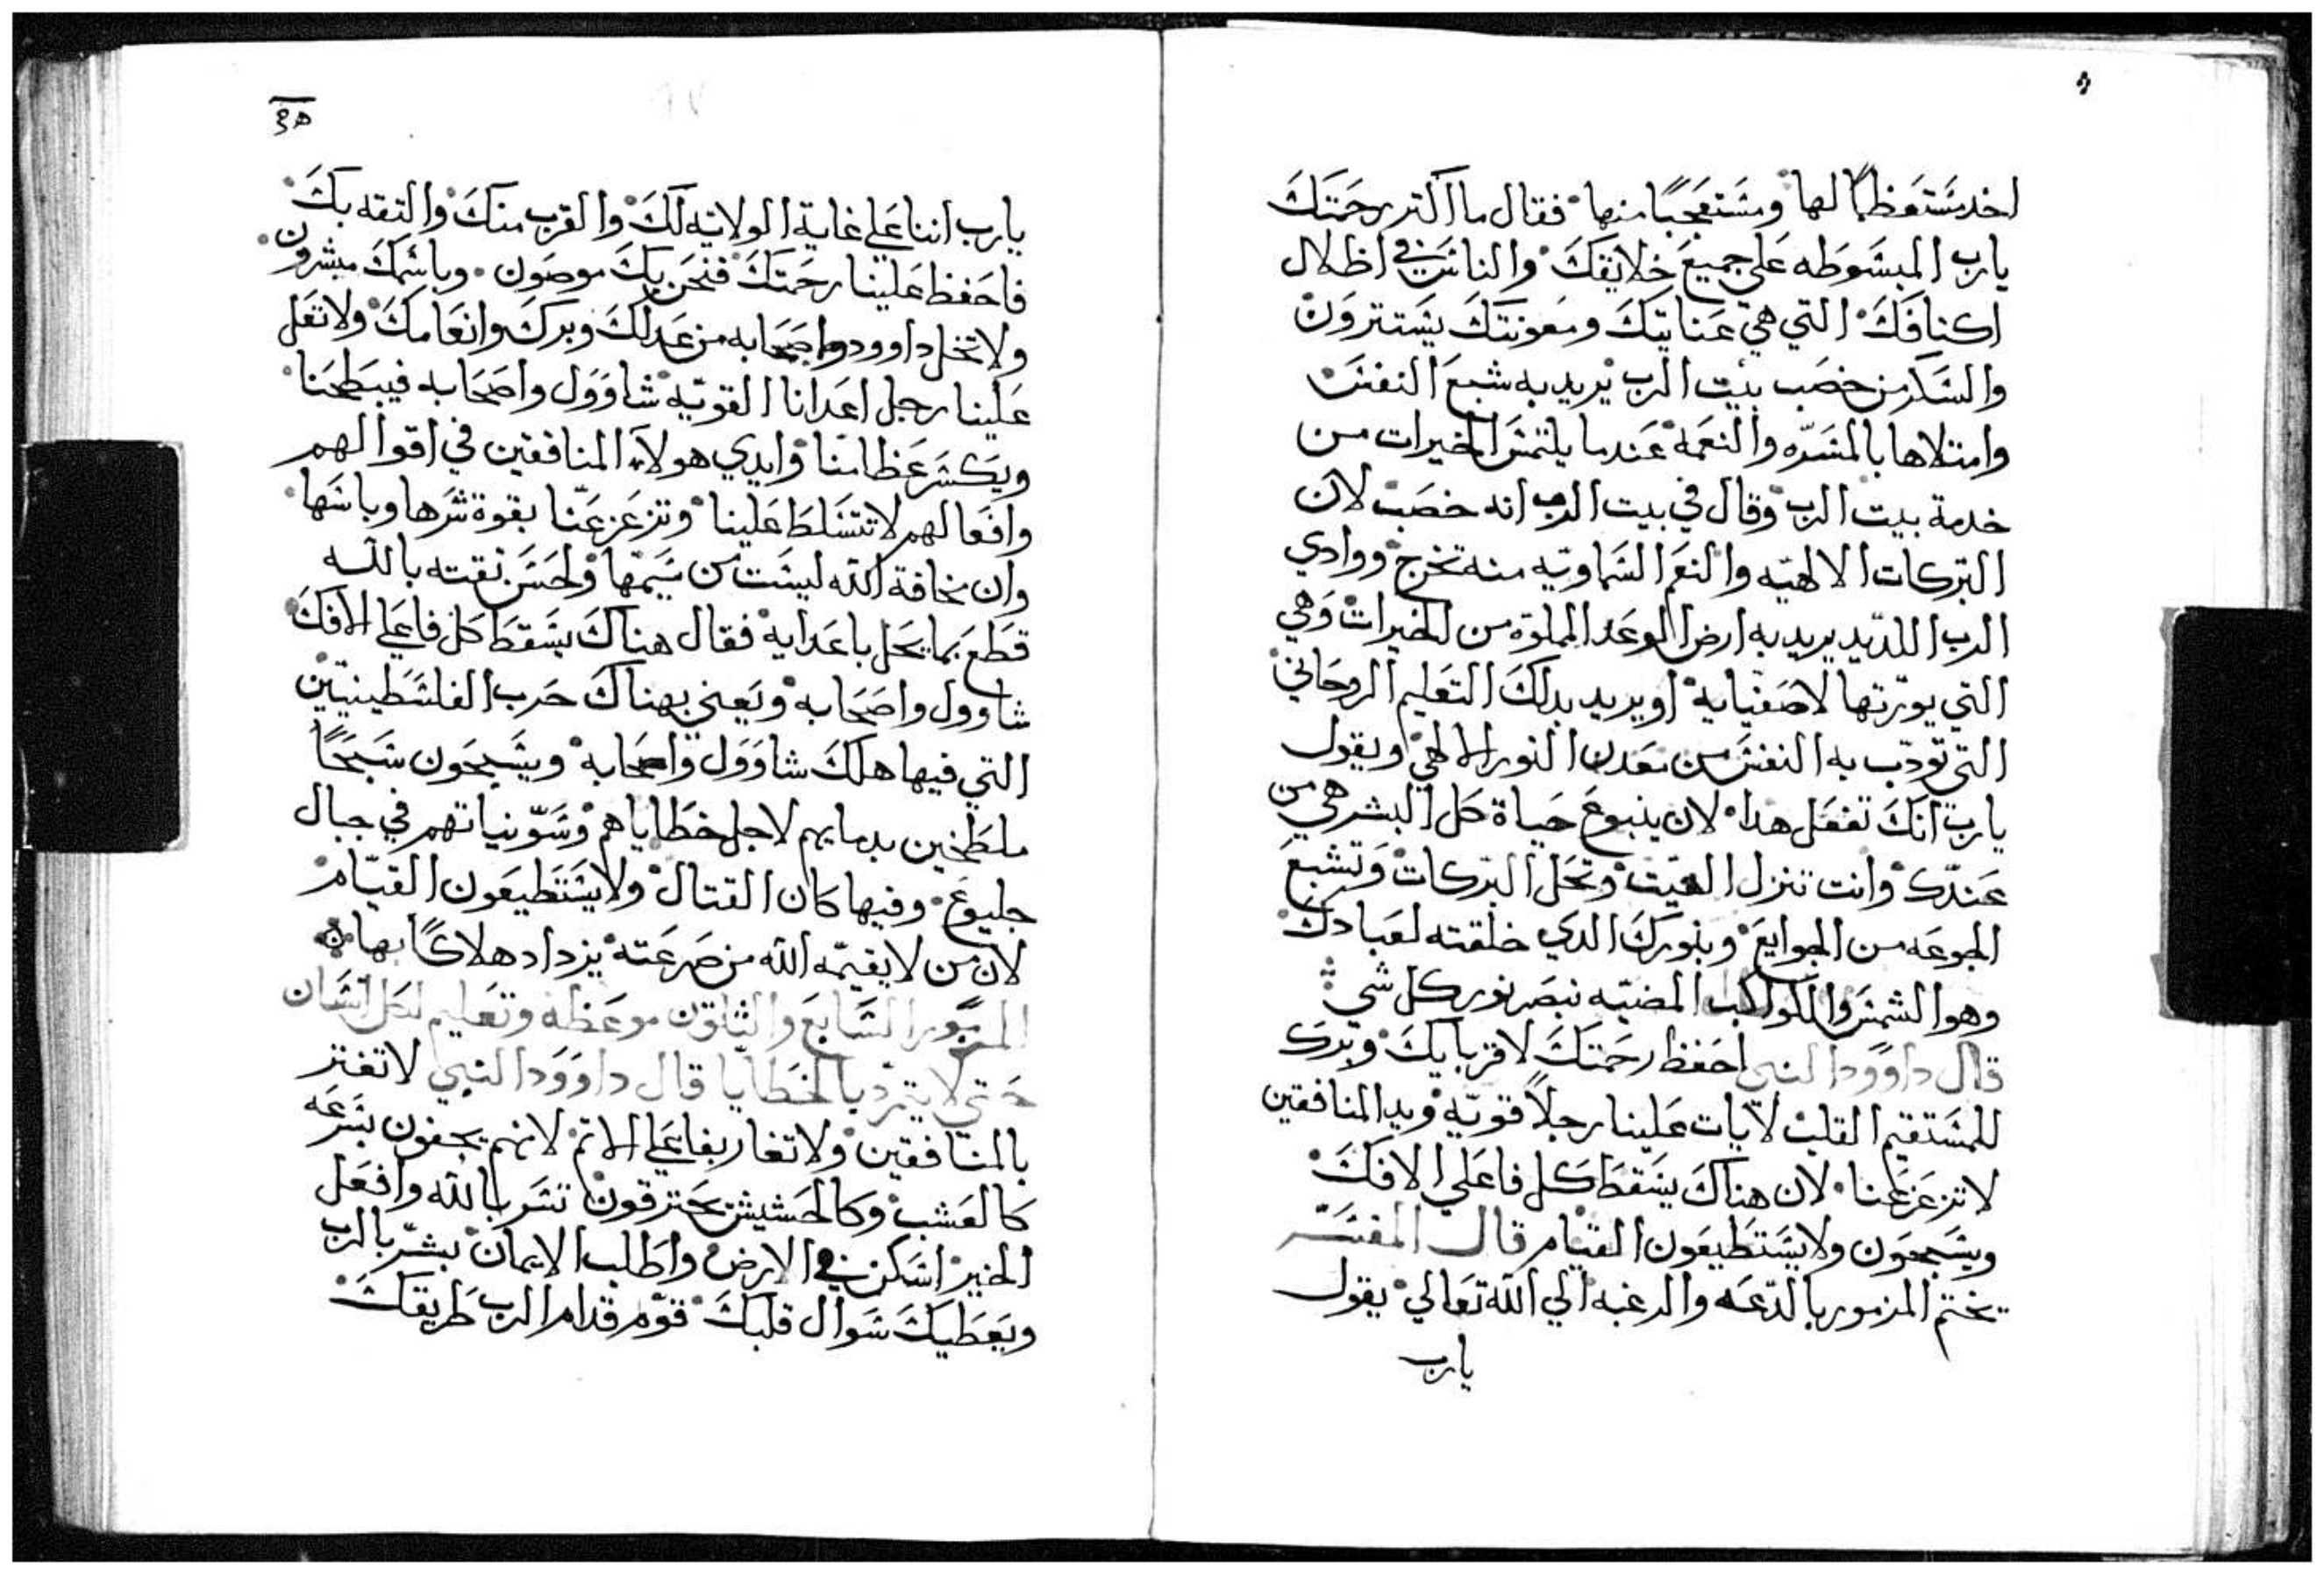 اخد مستعظمًا لها ومستعجبًا منها فقال ما اكتر رحمتك
يارب المبسوطه على جميع خلايقك والناس في اظلال
اكنافك التي هي عنايتك ومعونتك يستترون
والسكر من خصب بيت الرب يريد به شبع النفس
وامتلاها بالمسرّه والنعمه عندما يلتمس الخيرات من
خدمة بيت الرب وقال في بيت الرب انه خصب لان
البركات الالهيّه والنعم السماويّه منه تخرج ووادي
الرب اللديد يريد به ارض الوعد المملوّه من الخيرات وهي
التي يورّتها لاصفيايه او يريد بدلك التعليم الروحاني
التي تودّب به النفس من معدن النور الالهي ويقول
يارب انك تفعل هدا لان ينبوع حياة كل البشر هي من
عندك وانت تنزل الغيت وتحل البركات وتشبع
الجوعه من الجوايع وبنورك الدي خلقته لعبادك
وهو الشمس والكواكب المضيّه نبصر نور كل شي
قال داوود النبي احفظ رحمتك لاقربايك وبرك
للمستقيم القلب لا يات علينا رجلًا قويّه ويد المنافقين
لا تزعزعنا لان هناك يسقط كل فاعلي الافك
ويسجعون ولا يستطيعون القيام قال المفسّر
يختم المزمور بالدّعه والرغبه الي اللّه تعالي يقول
يارب
يارب اننا علي غاية الولايه لك والقرب منك والتقه بك
فاحفظ علينا رحمتك فنحن بك موصون وباسمك مبشرون
ولا تخل داوود واصحابه من عدلك وبرك وانعامك ولا تعل
علينا رجل اعدانا القويّه شاوول واصحابه فيبطحنا
ويكسر عظامنا وايدي هولاء المنافقين في اقوالهم
وافعالهم لا تتسلط علينا وتزعزعنّا بقوة شرها وباسها
وان مخافة اللّه ليست من سيمها ولحسن تقته باللّه
قطع بما يحل باعدايه فقال هناك يسقط كل فاعلي الافك
شاوول واصحابه ويعني بهناك حرب الفلسطينيّين
التي فيها هلك شاوول واصحابه ويسبحون سبحًا
ملطخين بدمايهم لاجل خطاياهم وسوّ نياتهم في جبال
جلبوع وفيها كان القتال ولا يستطيعون القيّام
لان من لا يقيمّه اللّه من صرعته يزداد هلاكًا بها
المزمور السابع والتلتون موعظه وتعليم لكل انسان
حتي لا يتردّ بالخطايا قال داوود النبي لا تغتر
بالمنافقين ولا تغار بفاعلي الاتم لانهم يجفون بسرعه
كالعشب وكالحشيش يحترقون تسر باللّه وافعل
الخير اسكن في الارض واطلب الايمان بشّر بالرب
ويعطيك سوال قلبك قوّم قدام الرب طريقك